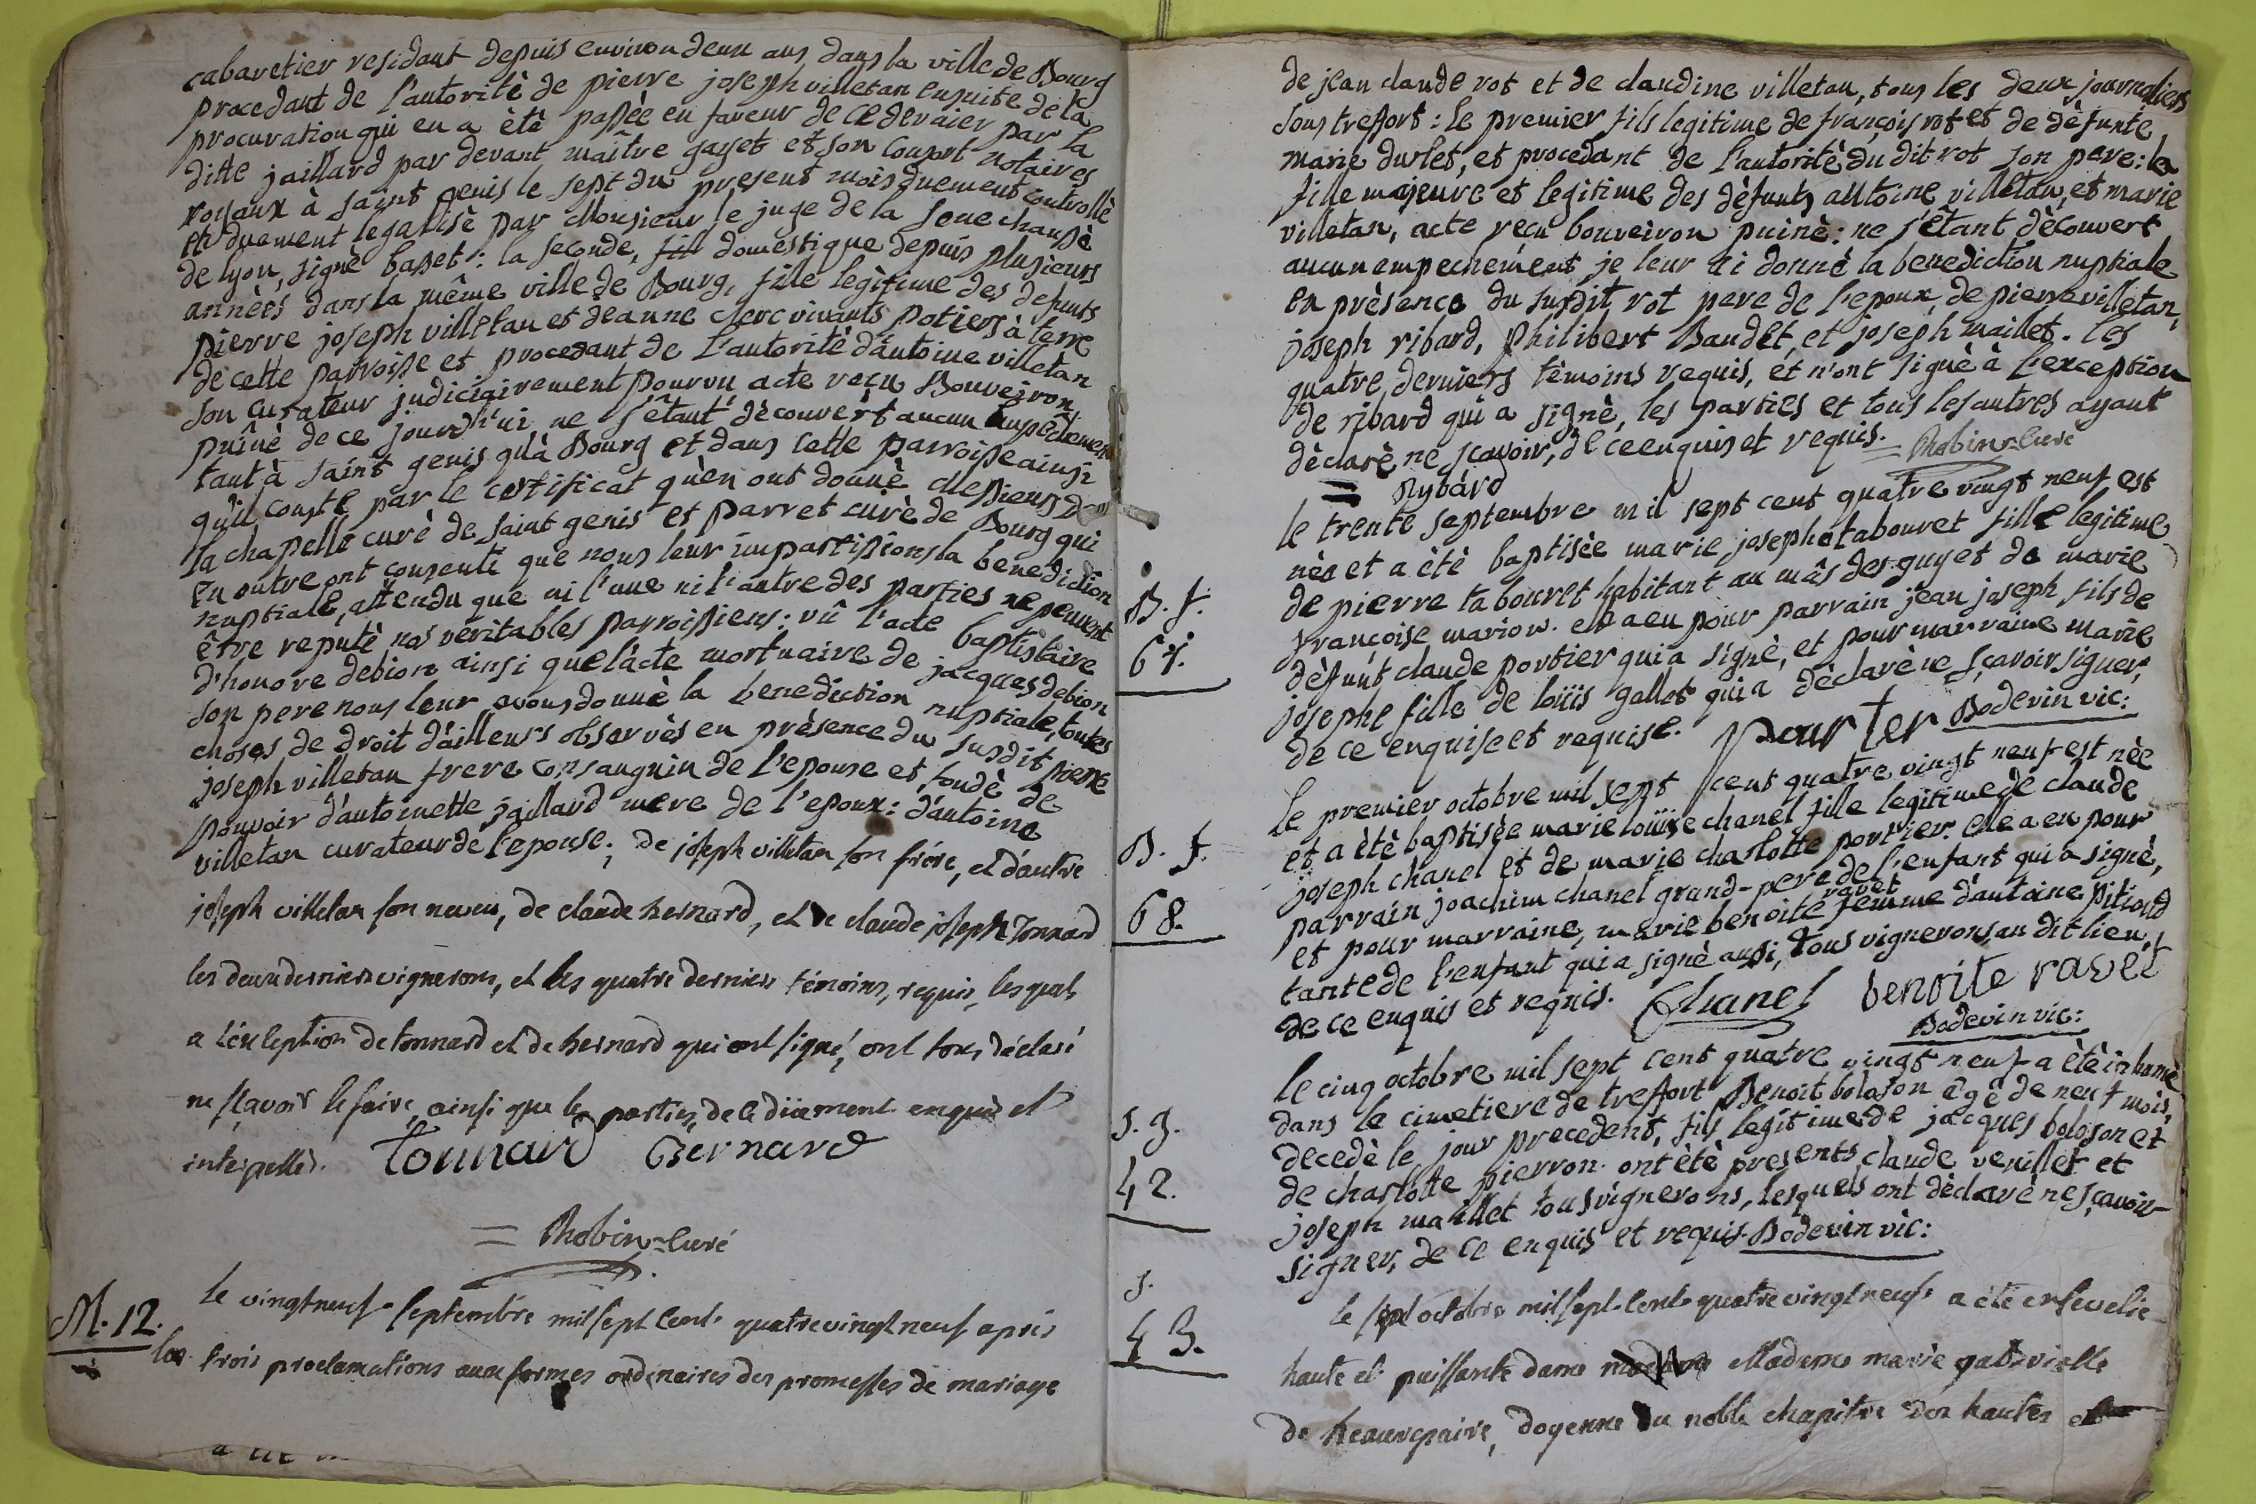 cabaretier residant depuis environ deux ans, dans la ville de Bourg
procedant de l'autorité de pierre joseph villetan ensuite de la
procuration qui en a èté passèe en faveur de ce dernier par la
ditte jaillard par devant maître gayet et son consort notaires
royaux à saint genis le sept du present mois duement controllè
et duement legalisè par Monsieur le juge de la senechaussè
de lyon, signè basset : la seconde, domestique depuis plusieurs
annèes dans la même ville de Bourg, fille legitime des defunts
pierre joseph villetan et deanne clerc vivants potiers à terre
de cette parroisse et procedant de l'autoritè d'antoine villetan
son curateur judiciairement pourvu acte reçu Bouveiron
puînè de ce jourdh'ui ne s'êtant dècouvert aucun empèchement
tant à saint genis qu'à Bourg et dans cette parroisse ainsi
qu'il conste par le certificat qu'en ont donnè Messieurs de
la chapelle curè de saint genis et parret curè de Bourg qui
en outre ont consenti que nous leur impartissions la benediction
nuptiale, attendu que ni l'une ni l'autre des parties ne peuvent
être reputè nos veritables parroissiens : vû l'acte baptistaire
d'honore debion ainsi que l'acte mortuaire de jacques debion
son pere nous leur avons donnè la benediction nuptiale, toutes
choses de droit d'ailleurs observès en prèsence du susdit pierre
joseph villetan frere consanguin de l'epouse et fondè de
pouvoir d'antoinette jaillard mere de l'epoux : d'antoine
villetan curateur de l'epouse ; de joseph villetan son frére, et d'autre
joseph villetan son neveu, de claude bernard, et de claude joseph Tonnard
les deux derniers vignerons, et les quatre derniers témoins, requis, lesquels
a l'éxception de tonnard et de bernard qui ont signé, ont tous déclaré
ne sçavoir le faire, ainsi que les parties, de ce düement enquis et
interpellés. Tonnard Bernard
= Robin curé
M. 12.
le vingt neuf septembre mil sept cent quatre vingt neuf après
les trois proclamations aux formes ordinaires des promesses de mariage
de jean claude rot et de claudine villetan, tous les deux journaliers
sous treffort : le premier fils legitime de françois rot et de dèfunte
marie durlet, et procedant de l'autoritè du dit rot son pere : la
fille majeure et legitime des dèfunts antoine villetan, et marie
villetan, acte reçu bouveiron puinè : ne s'êtant dècouvert
aucun empechement je leur ai donnè la benediction nuptiale
en prèsence du susdit rot pere de l'epoux, de pierre villetan,
joseph ribard, philibert Baudet, et joseph maillet. les
quatre derniers tèmoins requis, et n'ont signè à l'exception
de ribard qui a signè, les parties et tous les autres ayant
dèclarè ne sçavoir, de ce enquis et requis. = Robin curé
= Rybard
B. f.
67.
le trente septembre mil sept cent quatre vingt neuf est
nèe et a ètè baptisèe marie josephe tabouret fille legitime
de pierre tabouret habitant au mâs des guyet de marie
françoise marion. elle a eu pour parrain jean joseph fils de
dèfunt claude portier qui a signè, et pour marraine marie
josephe fille de loüis gallet qui a dèclarè ne sçavoir signer,
de ce enquise et requise. pourtier Bodevin vic:
B. f.
68.
le premier octobre mil sept cent quatre vingt neuf est nèe
et a ètè baptisèe marie loüise chanel fille legitime de claude
joseph chanel et de marie charlotte portier. elle a eu pour
parrain joachim chanel grand-pere de l'enfant qui a signè,
et pour marraine, marie benoite ravet femme d'antoine pitioud
tante de l'enfant qui a signè aussi, tous vignerons, au dit lieu,
de ce enquis et requis. Chanel benoite ravet
Bodevin vic:
s. g.
42.
le cinq octobre mil sept cent quatre vingt neuf a ètè inhumè
dans le cimetiere de treffort Benoit boloson âgè de neuf mois,
decedè le jour precedent, fils legitime de jacques boloson et
de charlotte pierron. ont ètè presents claude veuillet et
joseph maillet tous vignerons, lesquels ont dèclarè ne sçavoir
signer, de ce enquis et requis. Bodevin vic:
s.
43.
le sept octobre mil sept cent quatre vingt neuf a été ensevelie
haute et puissante dame Madame marie gabrielle
de beaurepaire, doyenne du noble chapitre des hautes et